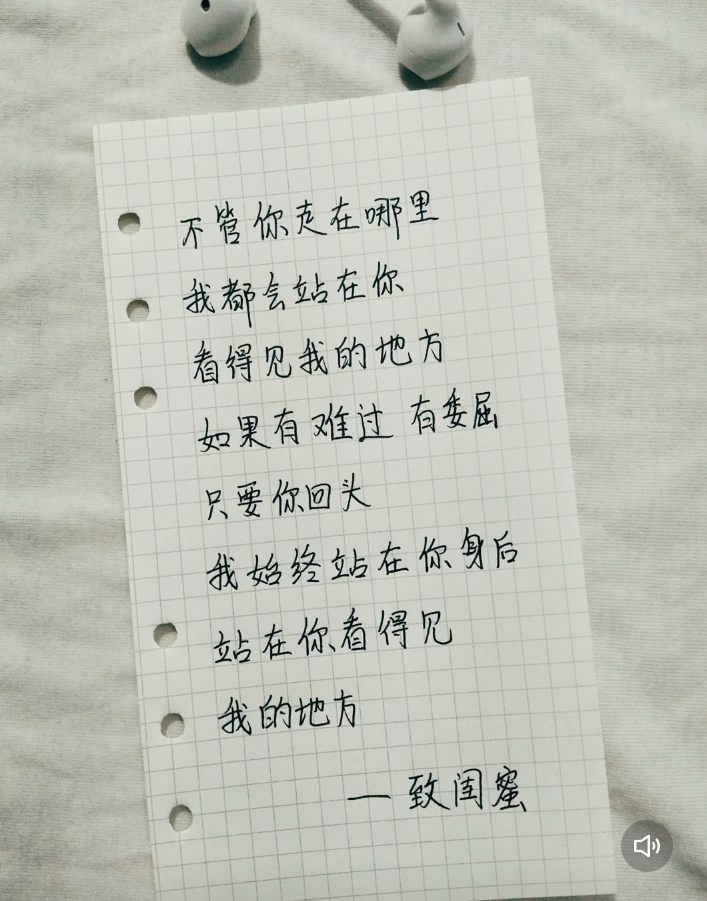 不管你走在哪里
我都会站在你
看得见我的地方
如果有难过 有委屈
只要你回头
我始终站在你身后
站在你看得见
我的地方
— 致闺蜜